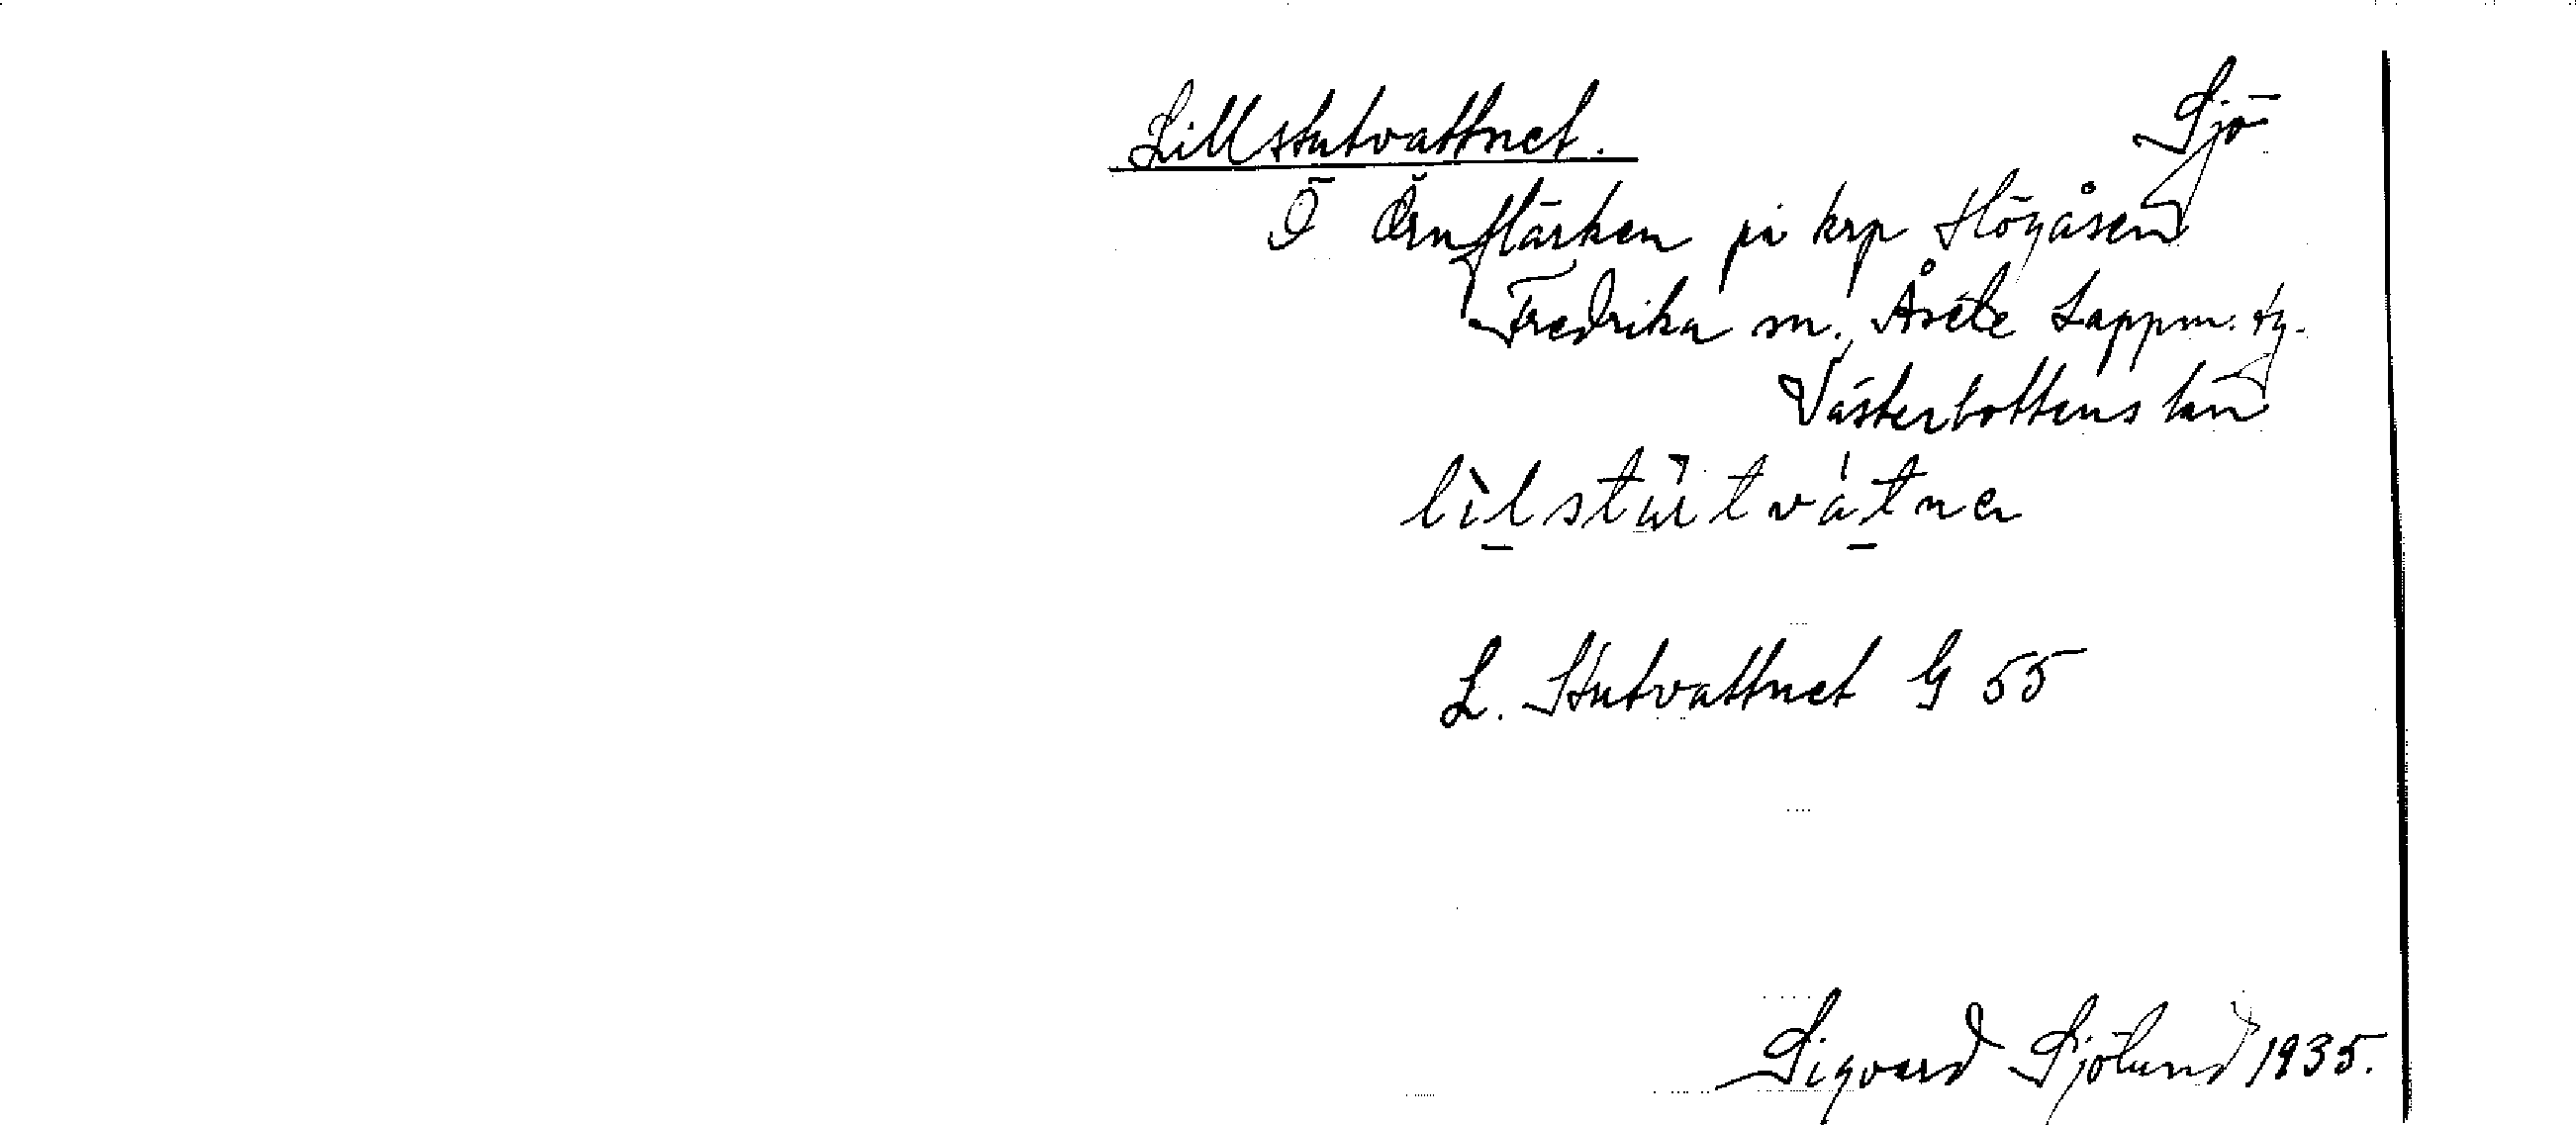 Lillstutvattnet. Sjö
Ö Örnflärken på krp Högåsen
Fredrika sn., Åsele Lappm. tg.
Västerbottens län
lìlstüt vátnɐ
L. Stutvattnet G 55
Sigvard Sjölund 1935.